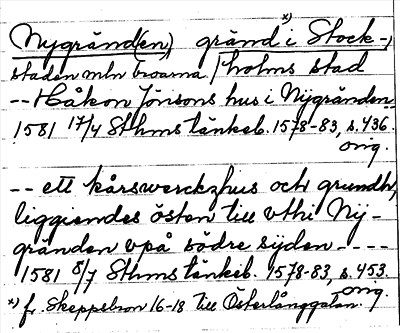 Nygränd(en), gränd *) i Stock-
staden mln broarna / holms stad
-- Håkon Jönsons hus i Nijgränden
1581 17/4 Sthms tänkeb. 1578-83, s. 436.
orig.
-- ett kårswerckzhus och grundh,
liggiendes östen till vthi Nij-
gränden vpå södre sijden - - - -
1581 8/7 Sthms tänkeb. 1578-83, s. 453.
orig.
*) fr. Skeppsbron 16-18 till Österlånggatan.